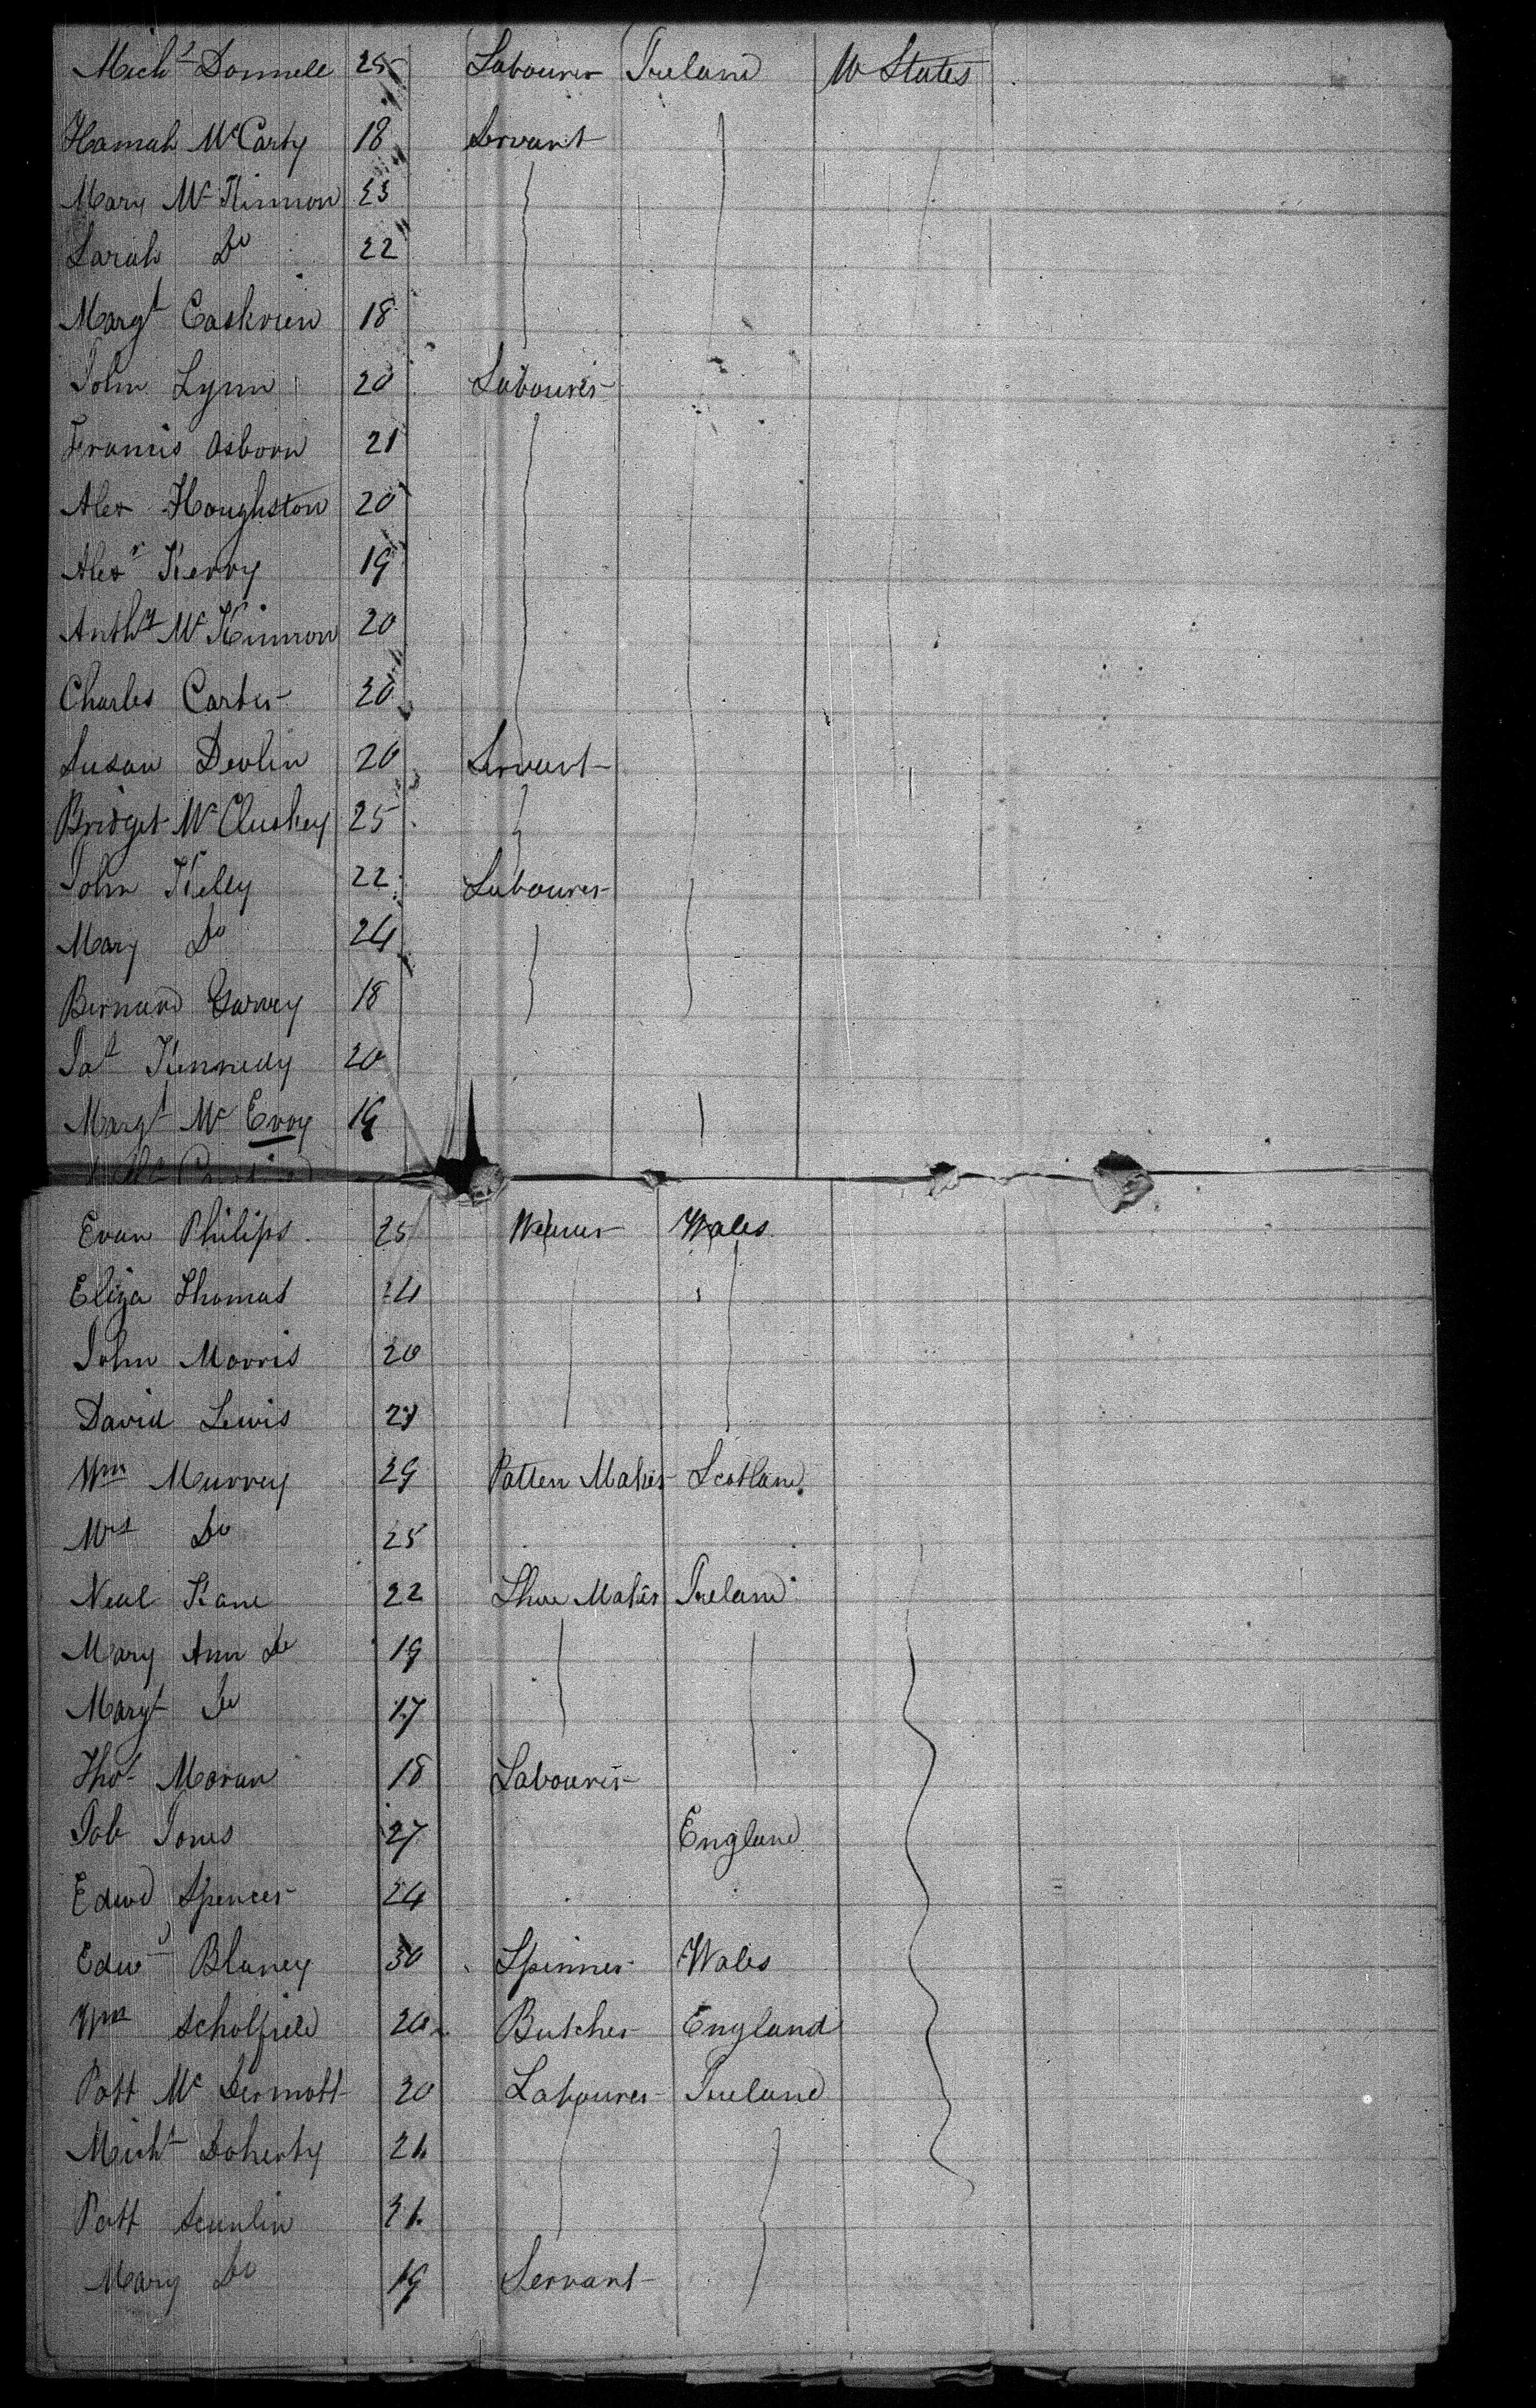 Michl Donnell 25 Labourer Ireland U States
Hannah McCarty 18 Servant
Mary McKinnon 23
Sarah Do 22
Margt 18
John Lynn 20 Labourer
Francis Osborn 21
Alex Houghston 20
Alexr Kerry 19
Anthy McKinnon 20
Charles Carter 20
Susan Devlin 20 Servant
Bridget McCluskey 25
John Kelly 22 Labourer
Mary Do 24
Bernard Garvey 18
Jas Kennedy 20
Margt McEvoy 19
Evan Philips 25 Weaver Wales
Eliza Thomas 24
John Morris 20
David Lewis 21
Wm Murrey 29 Patten Maker Scotland
Mrs Do 25
Neal Kane 22 Shoe Maker Ireland
Mary Ann Do 19
Margt Do 17
Thos Moran 18 Labourer
Job Jones 27 England
Edwd Spencer 24
Edwd Blaney 30 Spinner Wales
Wm Scholfield 20 Butcher England
Patt McDermott 20 Labourer Ireland
Michl Doherty 21
Patt Scanlin 21
Mary Do 19 Servant